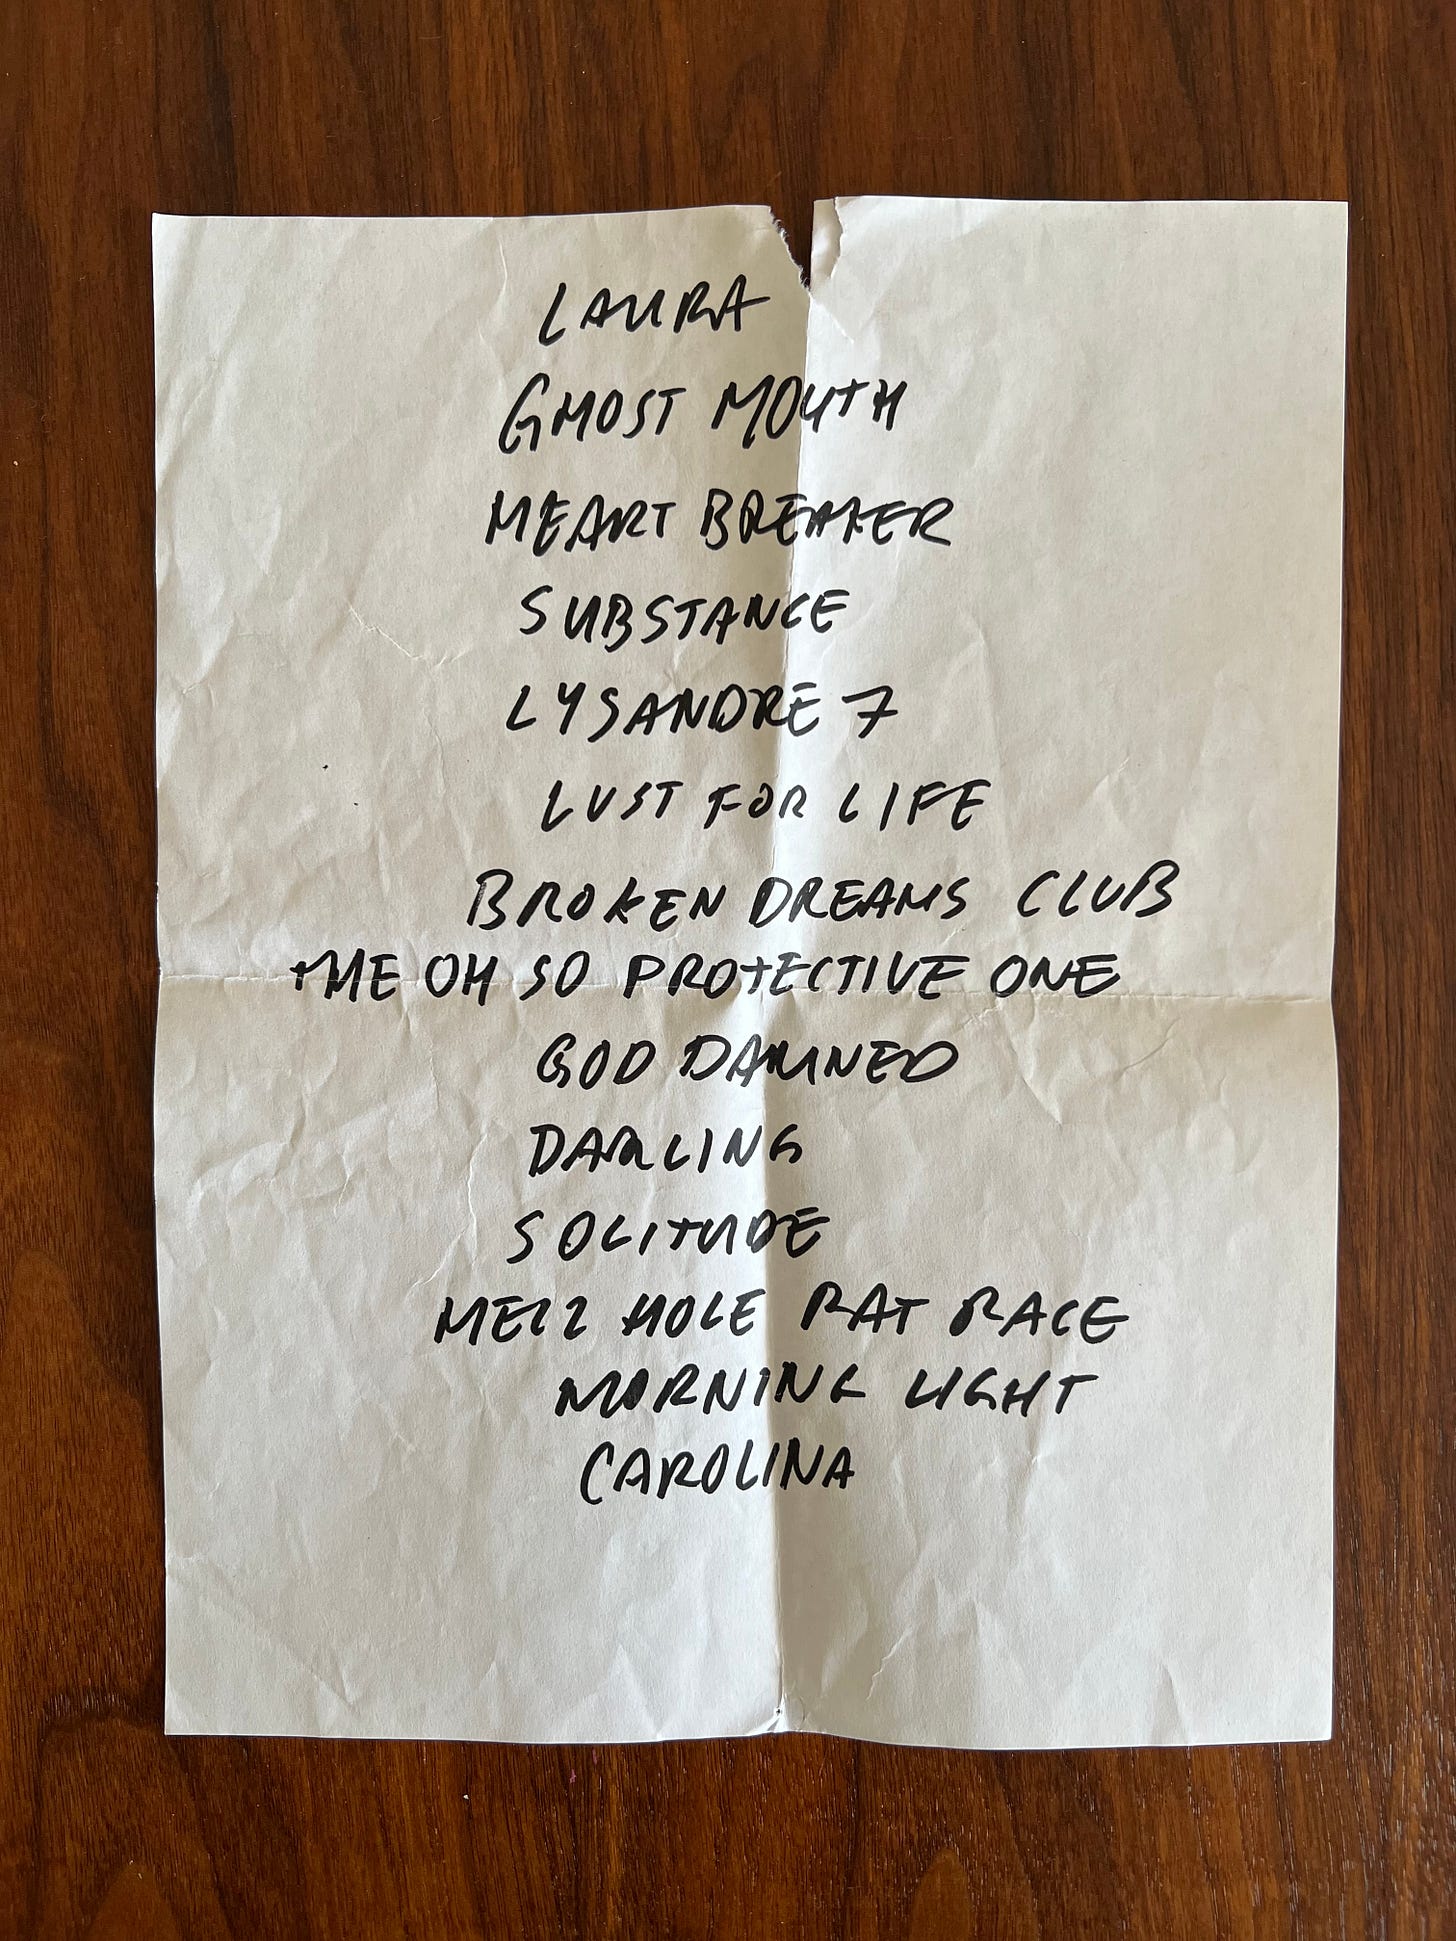 LAURA
GHOST MOUTH
HEART BREAKER
SUBSTANCE
LYSANDRE 7
LUST FOR LIFE
BROKEN DREAMS CLUB
THE OH SO PROTECTIVE ONE
GOD DAMNED
DARLING
SOLITUDE
HELL HOLE RAT RACE
MORNING LIGHT
CAROLINA